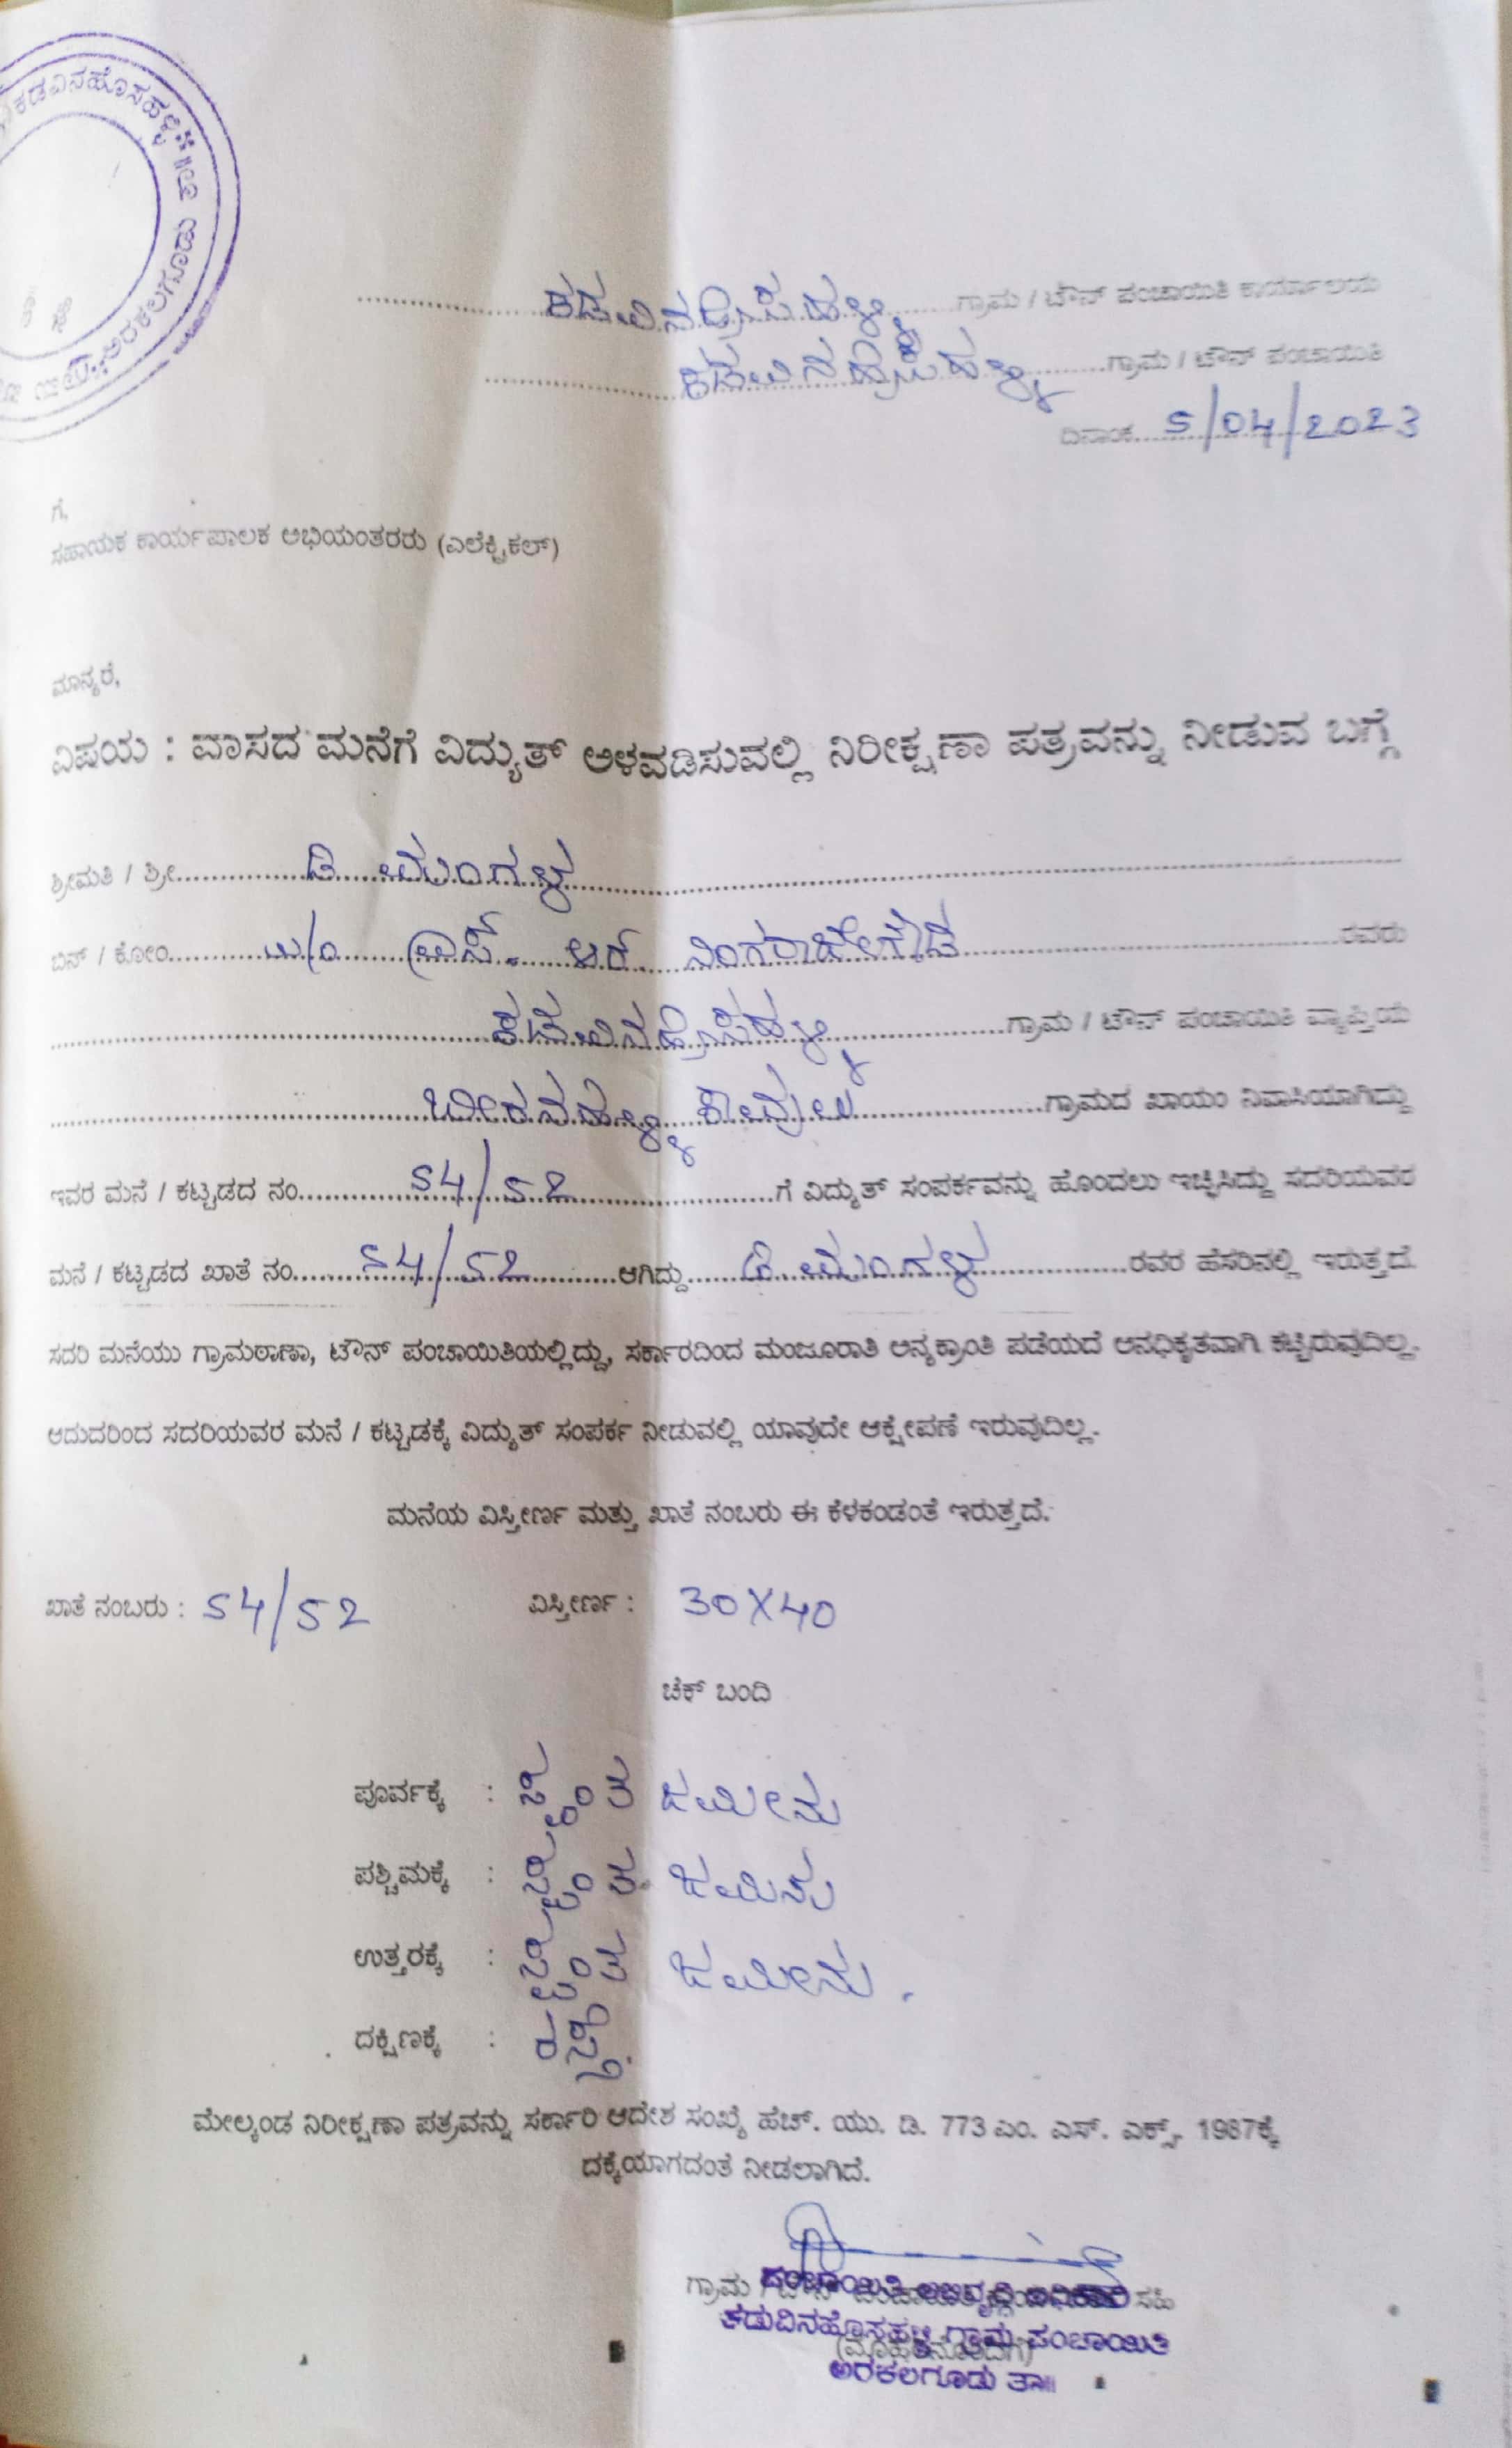 ಕಡವಿನಹೊಸಹಳ್ಳಿ ಗ್ರಾ॥ ಪಂ॥
ಅರಕಲಗೂಡು
ಕಡುವಿನಹೊಸಹಳ್ಳಿ ಗ್ರಾಮ / ಟೌನ್ ಪಂಚಾಯಿತಿ ಕಾರ್ಯಾಲಯ
ಕಡುವಿನಹೊಸಹಳ್ಳಿ ಗ್ರಾಮ / ಟೌನ್ ಪಂಚಾಯಿತಿ
ದಿನಾಂಕ 5/04/2023
ಗೆ,
ಸಹಾಯಕ ಕಾರ್ಯಪಾಲಕ ಅಭಿಯಂತರರು (ಎಲೆಕ್ಟ್ರಿಕಲ್)
ಮಾನ್ಯರೆ,
ವಿಷಯ : ವಾಸದ ಮನೆಗೆ ವಿದ್ಯುತ್ ಅಳವಡಿಸುವಲ್ಲಿ ನಿರೀಕ್ಷಣಾ ಪತ್ರವನ್ನು ನೀಡುವ ಬಗ್ಗೆ
ಶ್ರೀಮತಿ / ಶ್ರೀ ಡಿ. ಮಂಗಳ
ಬಿನ್ / ಕೋಂ W/O ಎಸ್. ಆರ್ ನಿಂಗರಾಜೇಗೌಡ ರವರು
ಕಡುವಿನಹೊಸಹಳ್ಳಿ ಗ್ರಾಮ / ಟೌನ್ ಪಂಚಾಯಿತಿ ವ್ಯಾಪ್ತಿಯ
ಬೀರನಹಳ್ಳಿ ಕಾವಲು ಗ್ರಾಮದ ಖಾಯಂ ನಿವಾಸಿಯಾಗಿದ್ದು
ಇವರ ಮನೆ / ಕಟ್ಟಡದ ನಂ. 54/52 ಗೆ ವಿದ್ಯುತ್ ಸಂಪರ್ಕವನ್ನು ಹೊಂದಲು ಇಚ್ಛಿಸಿದ್ದು ಸದರಿಯವರ
ಮನೆ / ಕಟ್ಟಡದ ಖಾತೆ ನಂ. 54/52 ಆಗಿದ್ದು ಡಿ. ಮಂಗಳ ರವರ ಹೆಸರಿನಲ್ಲಿ ಇರುತ್ತದೆ.
ಸದರಿ ಮನೆಯು ಗ್ರಾಮಠಾಣಾ, ಟೌನ್ ಪಂಚಾಯಿತಿಯಲ್ಲಿದ್ದು, ಸರ್ಕಾರದಿಂದ ಮಂಜೂರಾತಿ ಅನ್ಯಕ್ರಾಂತಿ ಪಡೆಯದೆ ಅನಧಿಕೃತವಾಗಿ ಕಟ್ಟಿರುವುದಿಲ್ಲ.
ಆದುದರಿಂದ ಸದರಿಯವರ ಮನೆ / ಕಟ್ಟಡಕ್ಕೆ ವಿದ್ಯುತ್ ಸಂಪರ್ಕ ನೀಡುವಲ್ಲಿ ಯಾವುದೇ ಆಕ್ಷೇಪಣೆ ಇರುವುದಿಲ್ಲ.
ಮನೆಯ ವಿಸ್ತೀರ್ಣ ಮತ್ತು ಖಾತೆ ನಂಬರು ಈ ಕೆಳಕಂಡಂತೆ ಇರುತ್ತದೆ.
ಖಾತೆ ನಂಬರು : 54/52 ವಿಸ್ತೀರ್ಣ : 30X40
ಚೆಕ್ ಬಂದಿ
ಪೂರ್ವಕ್ಕೆ : ಸ್ವಂತ ಜಮೀನು
ಪಶ್ಚಿಮಕ್ಕೆ : ಸ್ವಂತ ಜಮಿನು
ಉತ್ತರಕ್ಕೆ : ಸ್ವಂತ ಜಮೀನು.
ದಕ್ಷಿಣಕ್ಕೆ : ರಸ್ತೆ.
ಮೇಲ್ಕಂಡ ನಿರೀಕ್ಷಣಾ ಪತ್ರವನ್ನು ಸರ್ಕಾರಿ ಆದೇಶ ಸಂಖ್ಯೆ ಹೆಚ್. ಯು. ಡಿ. 773 ಎಂ. ಎಸ್. ಎಕ್ಸ್. 1987ಕ್ಕೆ
ದಕ್ಕೆಯಾಗದಂತೆ ನೀಡಲಾಗಿದೆ.
ಗ್ರಾಮ / ಟೌನ್ ಸಹಿ
ಪಂಚಾಯಿತಿ ಅಭಿವೃದ್ಧಿ ಅಧಿಕಾರಿ
ಕಡುವಿನಹೊಸಹಳ್ಳಿ ಗ್ರಾಮ ಪಂಚಾಯಿತಿ
(ಮೊಹರಿನೊಂದಿಗೆ)
ಅರಕಲಗೂಡು ತಾ॥